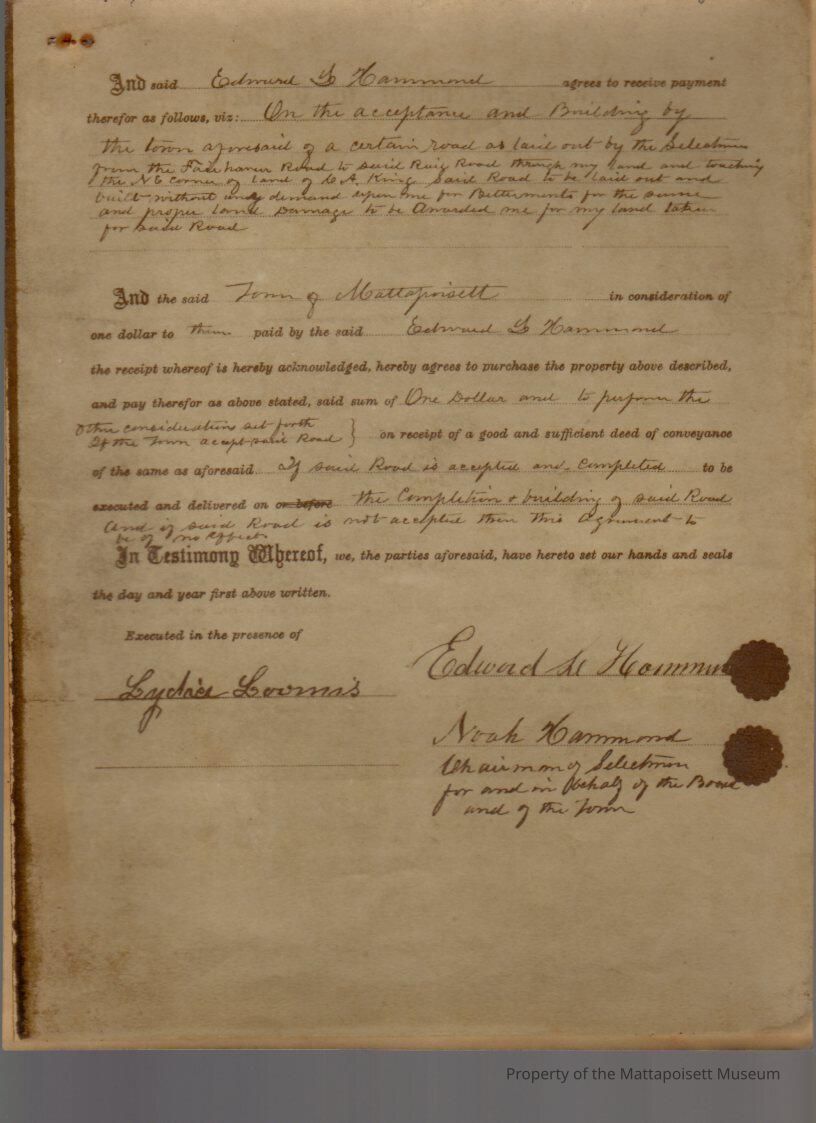 And said Edward L Hammond agrees to receive payment
therefor as follows, viz: On the acceptance and Building by
the town aforesaid of a certain road as laid out by the Selectmen
from the Fairhaven Road to said Road through my land and touching
the NE Corner of land of C.A. King. Said Road to be laid out and
built without any demand upon me for Betterments for the same
and proper land Damage to be Awarded me for my land taken
for said Road
And the said Town of Mattapoisett in consideration of
one dollar to them paid by the said Edward L Hammond
the receipt whereof is hereby acknowledged, hereby agrees to purchase the property above described,
and pay therefor as above stated, said sum of One Dollar and to perform the
Other considerations set forth
If the Town accept said Road } on receipt of a good and sufficient deed of conveyance
of the same as aforesaid If said Road is accepted and Completed to be
executed and delivered on or before the Completion & building of said Road
And if said Road is not accepted then this Agreement to
be of no effect.
In Testimony Whereof, we, the parties aforesaid, have hereto set our hands and seals
the day and year first above written.
Executed in the presence of
Edward L Hammond
Lydia Loomis
Noah Hammond
Chairman of Selectmen
for and in behalf of the Board
and of the Town
Property of the Mattapoisett Museum